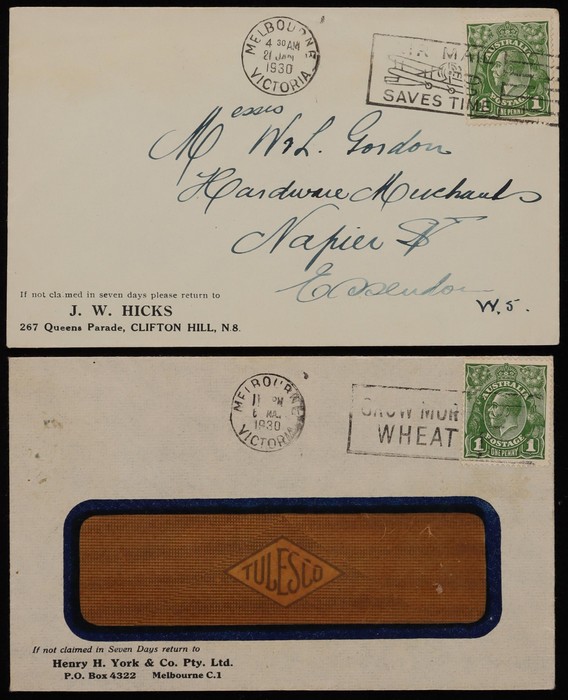 MELBOURNE
4 30 AM
21 JAN
1930
VICTORIA
AIR MAIL
SAVES TIME
AUSTRALIA
POSTAGE
1 1
ONE PENNY
Messrs W & L. Gordon
Hardware Merchants
Napier St
Essendon
W. 5.
If not claimed in seven days please return to
J. W. HICKS
267 Queens Parade, CLIFTON HILL, N.8.
MELBOURNE
PM
1930
VICTORIA
GROW MOR
WHEAT
AUSTRALIA
POSTAGE
1 1
ONE PENNY
TULESCO
If not claimed in Seven Days return to
Henry H. York & Co. Pty. Ltd.
P.O. Box 4322 Melbourne C.1